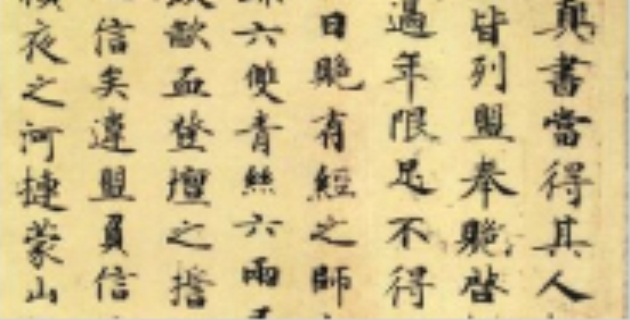 真書當得其人
皆列盟奉貺啓
過年限足不得
日貺有經之師
六雙青絲六兩
歃血登壇之
信矣違盟負信
夜之河揵蒙山